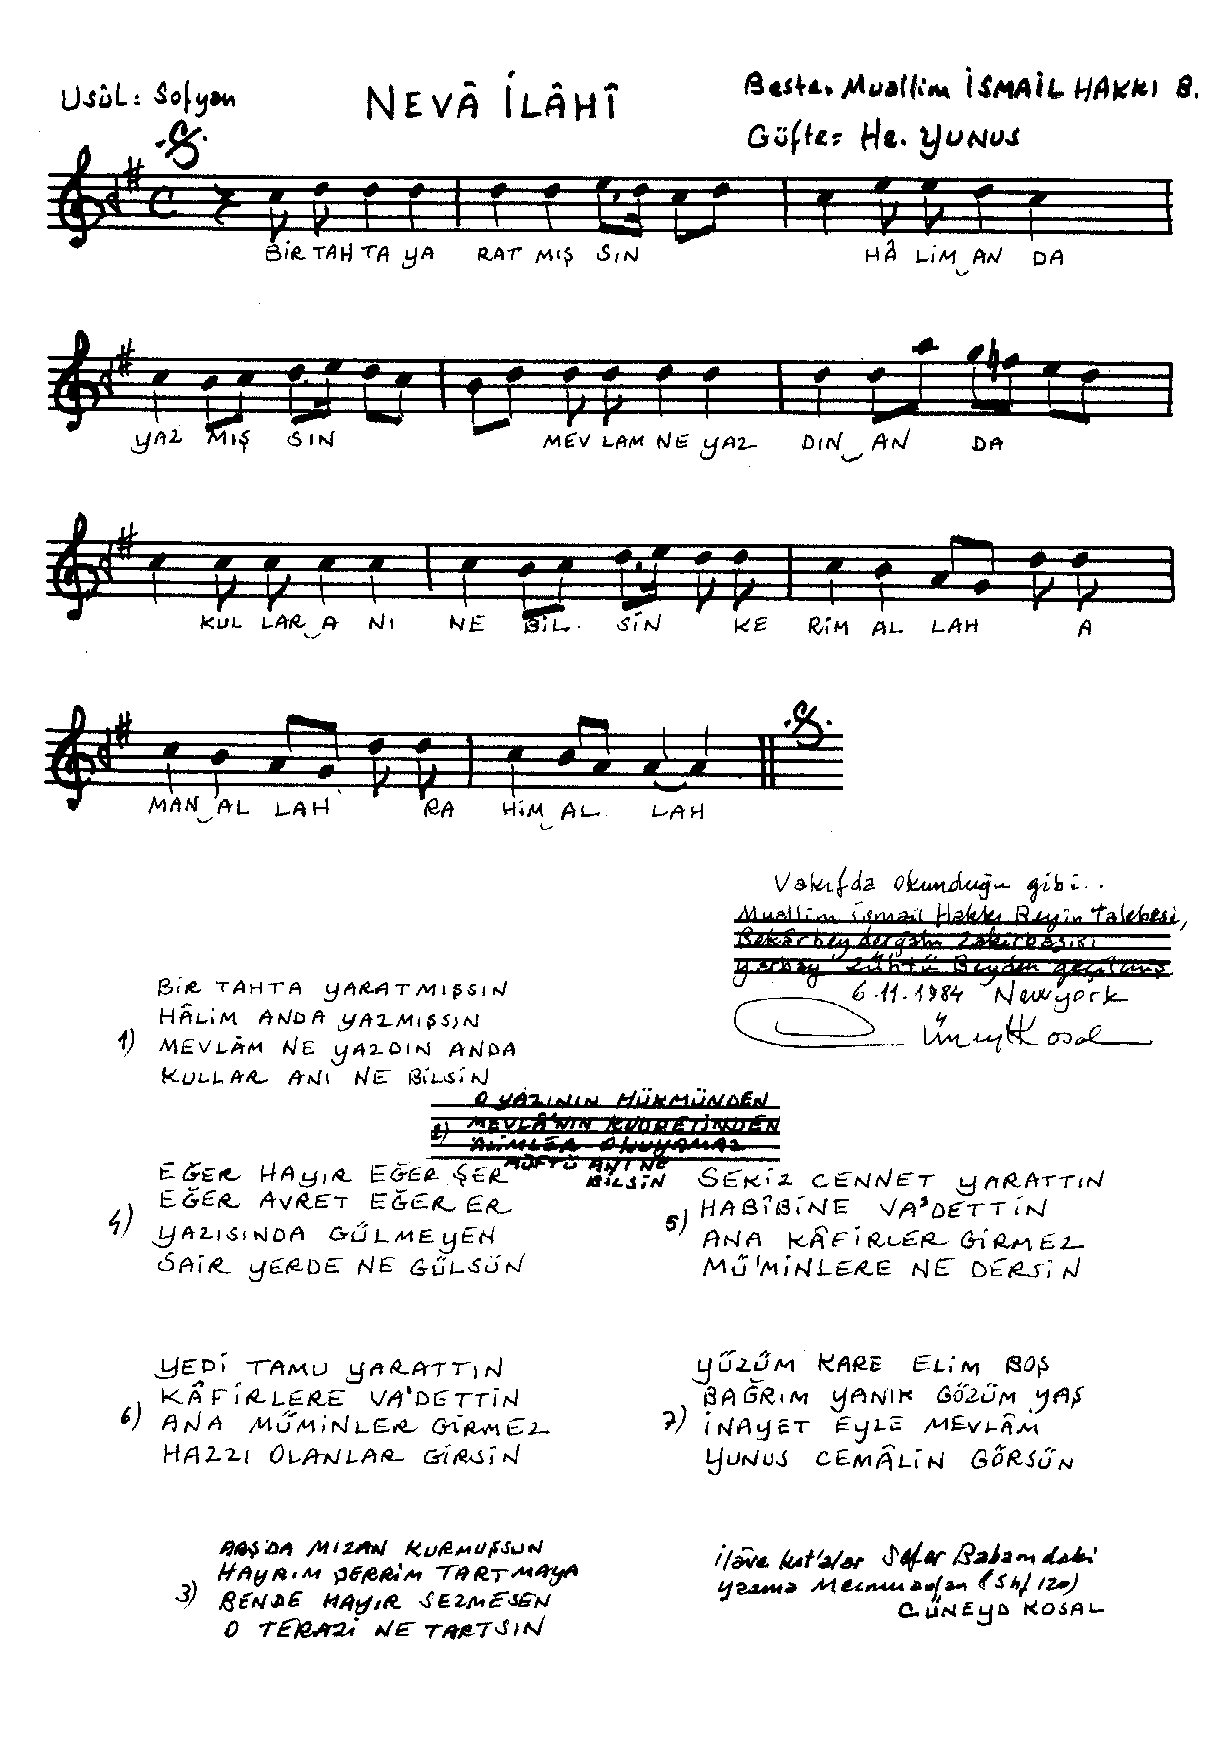 Usûl: Sofyan
NEVÂ İLÂHÎ
Beste. Muallim İSMAİL HAKKI B.
Güfte: Hz. YUNUS
BİR TAH TA YA RAT MIŞ SIN HÂ LİM AN DA
YAZ MIŞ SIN MEV LAM NE YAZ DIN AN DA
KUL LAR A NI NE BİL. SİN KE RİM AL LAH A
MAN AL LAH RA HİM AL LAH
Vakıfda okunduğu gibi..
Muallim İsmail Hakkı Beyin talebesi,
Bekârbey dergâhı zâkirbaşısı
yarbay Zühtü Beyden geçilmiş
6.11.1984 Newyork
Cüneyt Kosal
1) BİR TAHTA YARATMIŞSIN
HÂLİM ANDA YAZMIŞSIN
MEVLÂM NE YAZDIN ANDA
KULLAR ANI NE BİLSİN
2) O YAZININ HÜKMÜNDEN
MEVLÂ'NIN KUDRETİNDEN
ALİMLER OKUYAMAZ
MÜFTÜ ANI NE
BİLSİN
4) EĞER HAYIR EĞER ŞER
EĞER AVRET EĞER ER
YAZISINDA GÜLMEYEN
SAİR YERDE NE GÜLSÜN
5) SEKİZ CENNET YARATTIN
HABÎBİNE VA'DETTİN
ANA KÂFİRLER GİRMEZ
MÜ'MİNLERE NE DERSİN
6) YEDİ TAMU YARATTIN
KÂFİRLERE VA'DETTİN
ANA MÜMİNLER GİRMEZ
HAZZI OLANLAR GİRSİN
7) YÜZÜM KARE ELİM BOŞ
BAĞRIM YANIK GÖZÜM YAŞ
İNAYET EYLE MEVLÂM
YUNUS CEMÂLİN GÖRSÜN
3) ARŞDA MIZAN KURMUŞSUN
HAYRIM ŞERRİM TARTMAYA
BENDE HAYIR SEZMESEN
O TERAZİ NE TARTSIN
İlâve kıt'alar Sefer Babamdaki
yazma Mecmuadan (Shf 120)
CÜNEYD KOSAL